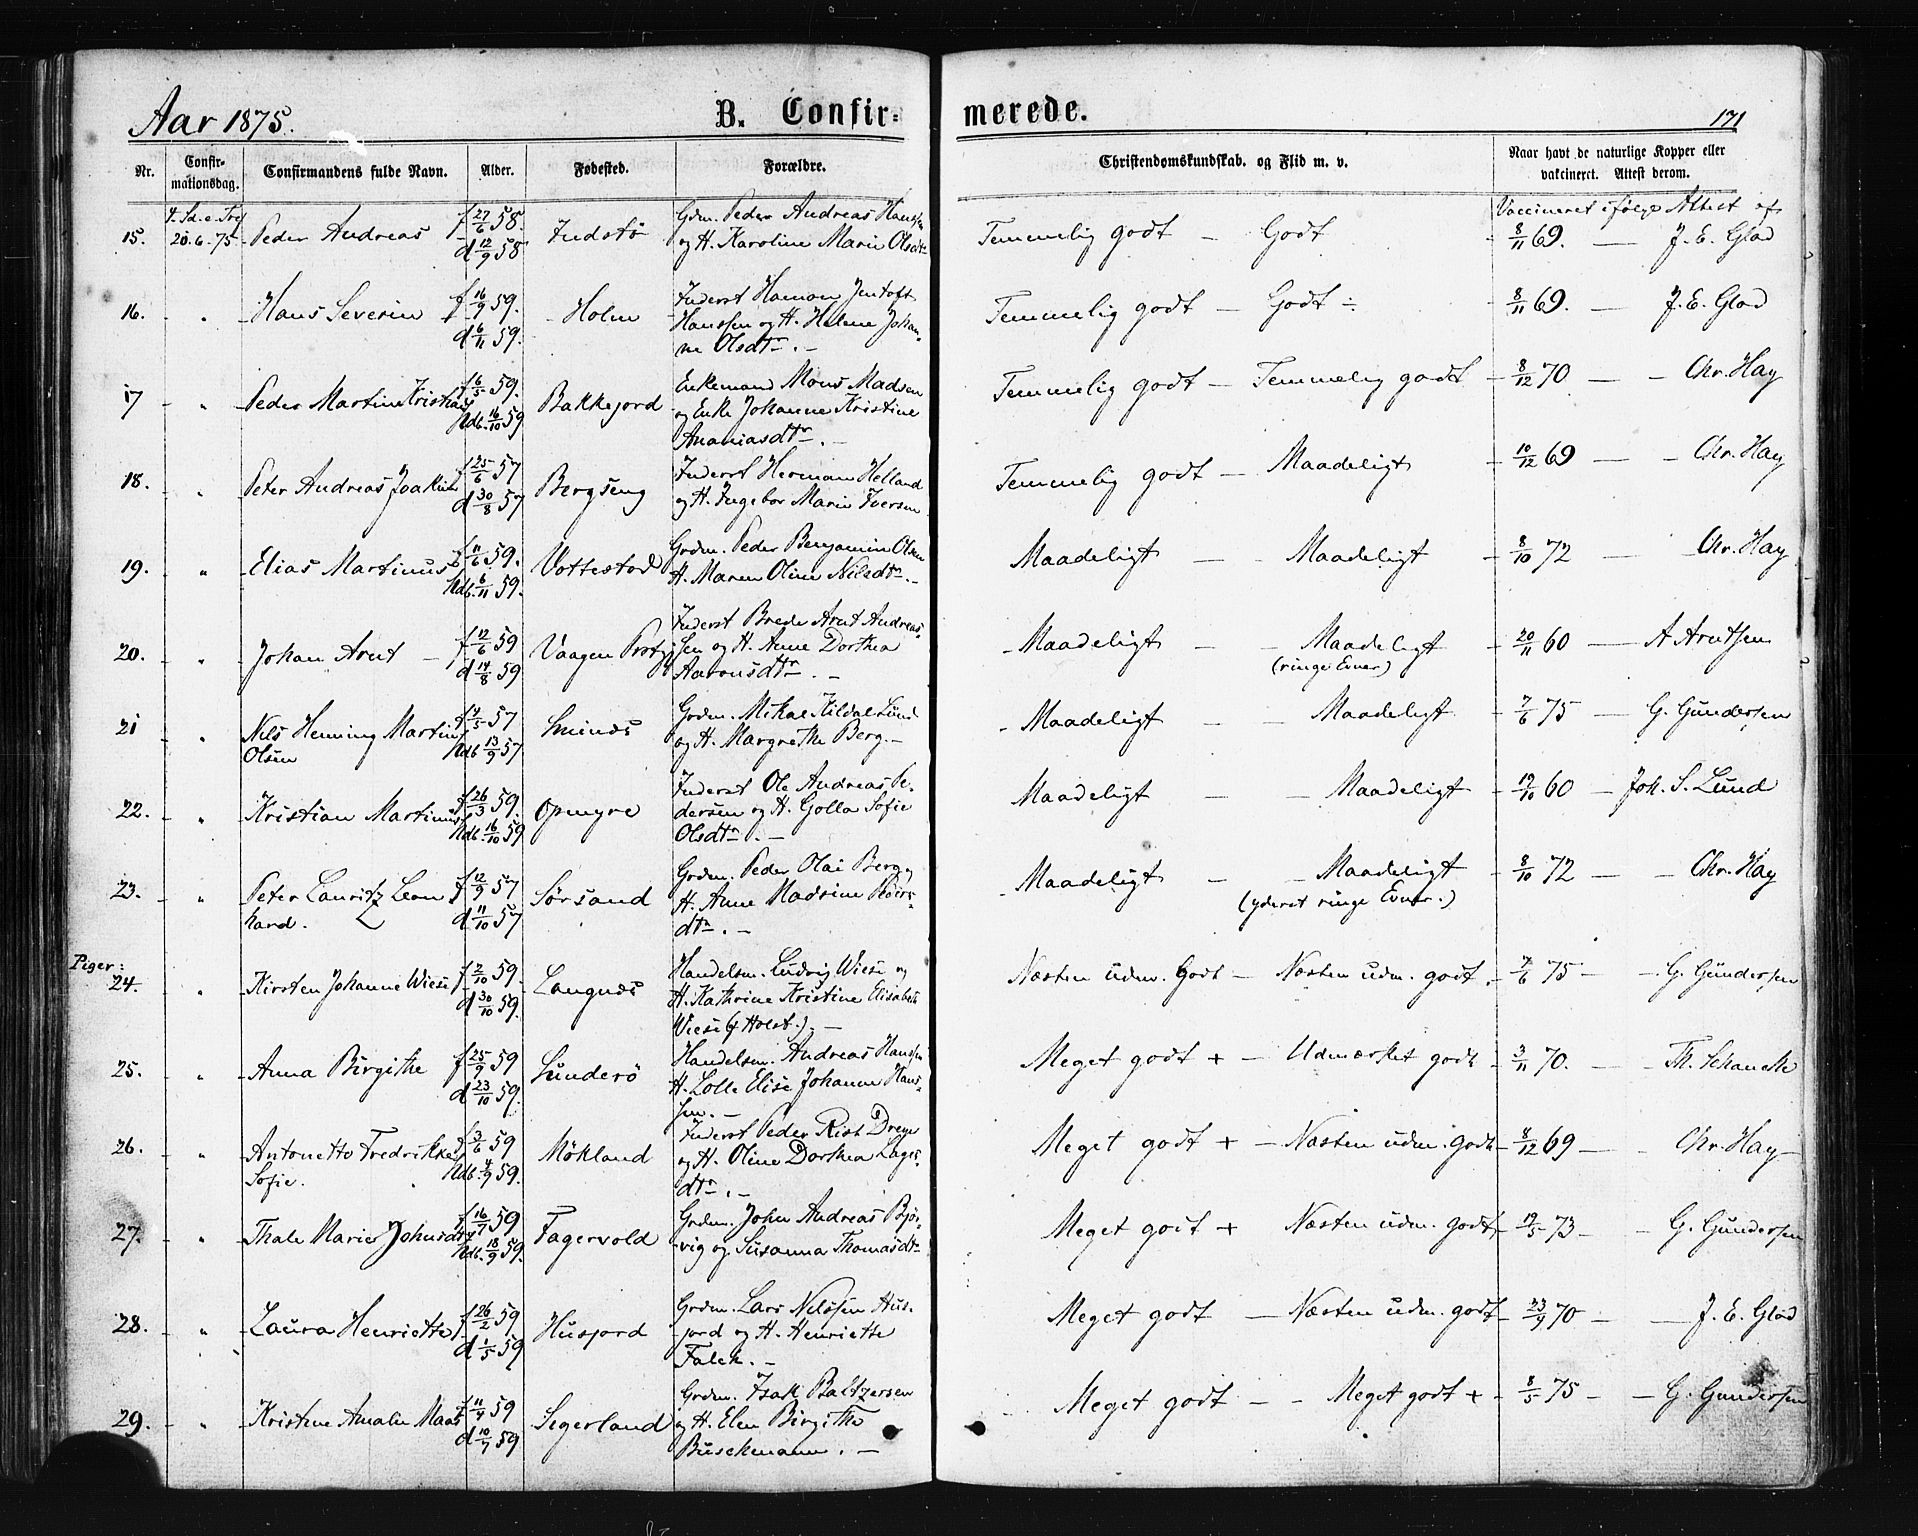 Aar 1875. B. Confir= merede. 171
Nr. Confir-mationsdag. Confirmandens fulde Navn. Alder. Fødested. Forældre. Christendomskundskab. og Flid m. v. Naar havt de naturlige Kopper eller vakcineret. Attest derom.
4. Sd. e. Tref Vaccineret ifølge Attest af
15. 20.6.75 Peder Andreas f 27/6 58. d 12/9 58 Indstø Grdm. Peder Andreas Hanssen og H. Karoline Marie Olsdtr Temmelig godt – Godt 8/11 69. – J. E. Glad
16. " Hans Severin f 16/9 59. d 6/11 59. Holm Inderst Haman Jentoft Hanssen og H. Helene Johanne Olsdtr. – Temmelig godt – Godt ÷ 8/11 69. – J. E. Glad
17 " Peder Martin Kristian f 6/5 59. Ndb. 16/10 59 Bakkejord Enkemand Mons Madsen og Enke Johanne Kristine Ananiasdtr. – Temmelig godt – Temmelig godt – 8/12 70 – Chr. Hay
18. " Peter Andreas Joakim f 25/6 57 d 30/8 57 Bergseng Inderst Herman Helland og H. Ingebor Marie Iversen Temmelig godt – Maadeligt – 10/12 69 – Chr. Hay
19. " Elias Martinus f 11/6 59. Ndb. 6/11 59. Vottestad Grdm. Peder Benjamin Olsen H. Maren Oline Nilsdtr. – Maadeligt – Maadeligt – 8/10 72 – Chr. Hay
20. " Johan Arnt – f 12/6 59 d 14/8 59 Vaagen Prstgj Inderst Brede Arnt Andreassen og H. Anne Dorthea Aaronsdtr. – Maadeligt – Maadeligt (ringe Evner) – 20/11 60 – A Arntsen
21 " Nils Henning Martin Olsen f 4/5 57 Ndb 13/9 57 Smines Grdm. Mikal Kildal Lund og H. Margrethe Berg. – Maadeligt – Maadeligt – 7/6 75 – G. Gundersen
22. " Kristian Martinus f 26/3 59. Ndb. 16/10 59 Opmyre Inderst Ole Andreas Pedersen og H. Golla Sofie Olsdtr. – Maadeligt – Maadeligt – 19/10 60 – Joh. S. Lund
23. " Peter Lauritz Leonhard. f 12/9 57 d 11/10 57 Sørsand Grdm. Peder Olai Berg og H. Anne Madsine dtr. – Maadeligt – Maadeligt (yderst ringe Evner.) 8/10 72 – Chr. Hay
Piger:
24. " Kirsten Johanne Wiese f 2/10 59. d 30/10 59. Langnes Handelsm. Ludvig Wiese og H. Kathrine Kristine Elisabeth Wiese (f Holst.). – Næsten udm. Godt – Næsten udm. godt. 7/6 75 – G. Gundersen
25. " Anna Birgithe f 25/9 59 d 23/10 59. Sunderö Handelsm. Andreas Hanssen H. Lolle Elise Johanne Hanssen. – Meget godt + – Udmærket godt – 3/11 70. – Th. Schancke
26. " Antonette Fredrikke Sofie. f 3/6 59 Ndb. 4/9 59. Mökland Inderst Peder Rist Dreyer og H. Oline Dorthea Lagesdtr. – Meget godt + – Næsten udm. godt – 8/12 69 – Chr. Hay –
27. " Thale Marie Johnsdtr f 16/7 59 Ndb. 18/9 59. Fagervold Grdm. John Andreas Bjørvig og Susanna Thomasdtr – Meget godt + Næsten udm. godt 19/5 73 – G. Gundersen
28. " Laura Henriette f 26/2 59 d 1/5 59 Husjord Grdm. Lars Nilssen Husjord og H. Henriette Falck. – Meget godt – Næsten udm. godt – 23/9 70 – J. E. Glad
29. " Kristine Amalie Maas f 11/4 59 d 10/7 59 Segerland Grdm. Isak Baltzersen og H. Elen Birgithe Buschmann. – Meget godt – Meget godt + – 8/5 75 – G. Gundersen